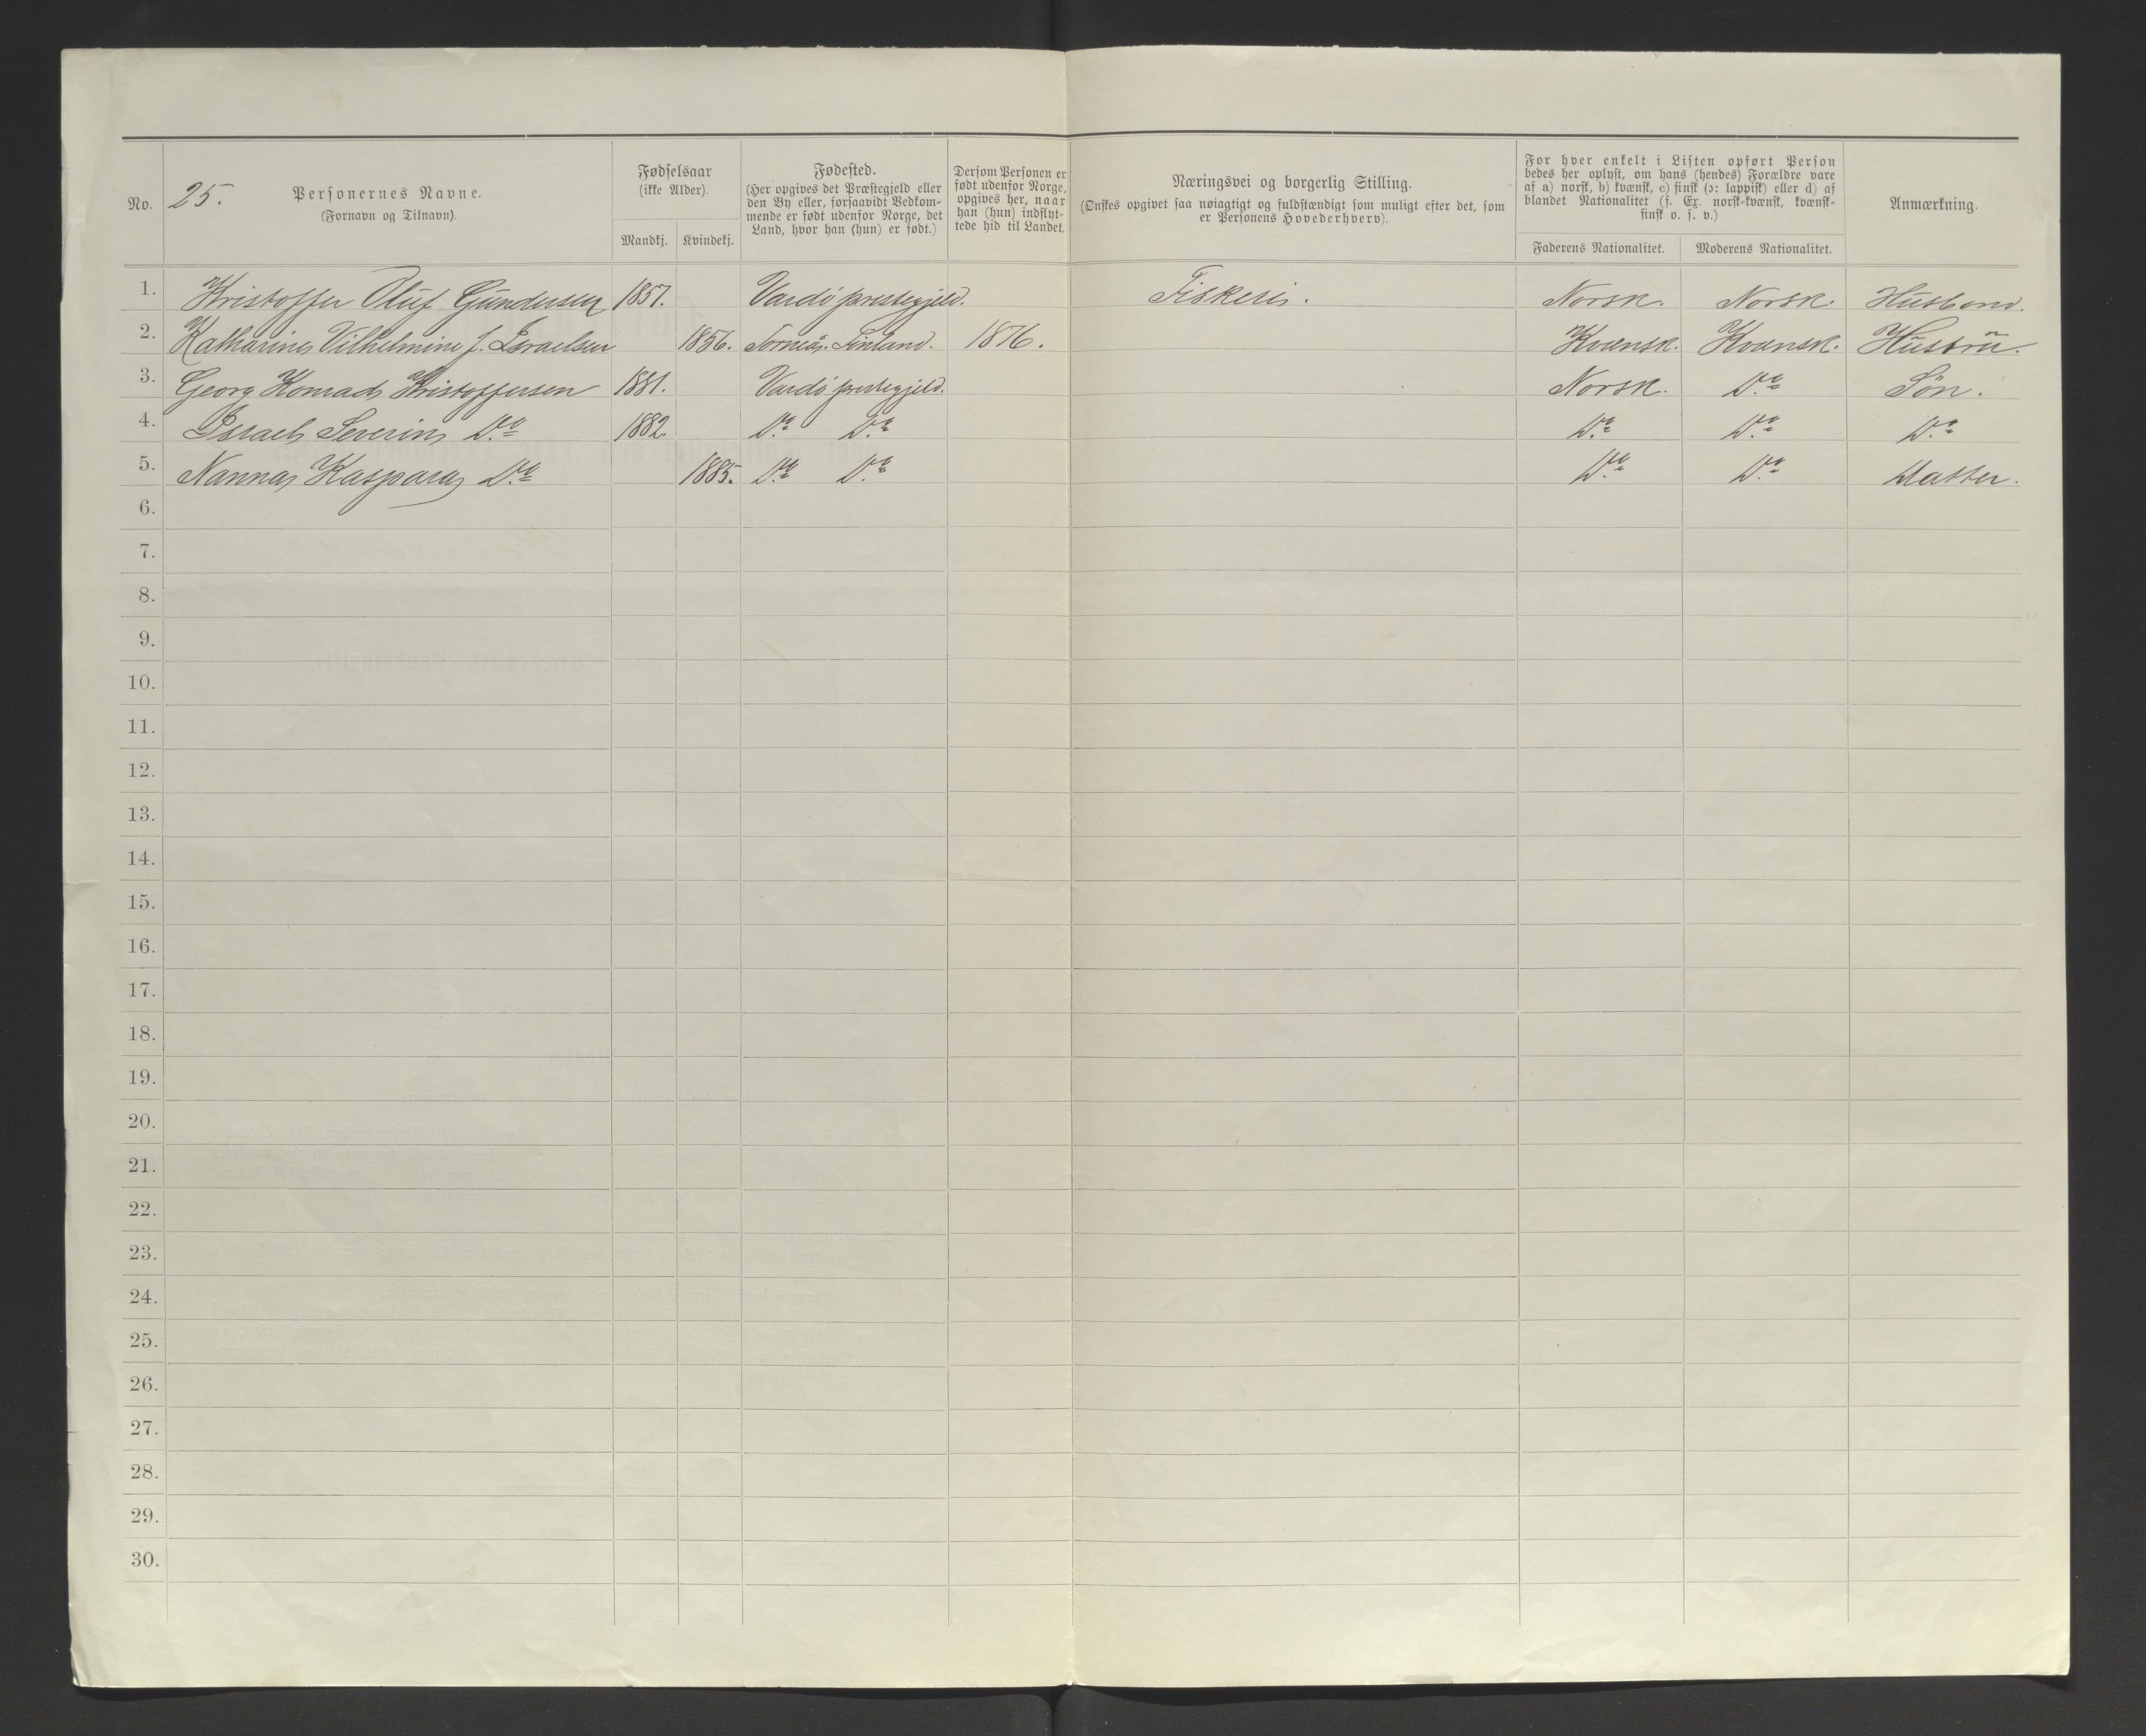 No.
25.
Personernes Navne.
(Fornavn og Tilnavn).
Fødselsaar
(ikke Alder).
Mandkj. Kvindekj.
Fødested.
(Her opgives det Præstegjeld eller
den By eller, forsaavidt Vedkom-
mende er født udenfor Norge, det
Land, hvor han (hun) er født.)
Dersom Personen er
født udenfor Norge,
opgives her, naar
han (hun) indflyt-
tede hid til Landet.
Næringsvei og borgerlig Stilling.
(Ønskes opgivet saa nøiagtigt og fuldstændigt som muligt efter det, som
er Personens Hovederhverv).
For hver enkelt i Listen opført Person
bedes her oplyst, om hans (hendes) Forældre vare
af a) norsk, b) kvænsk, c) finsk (ɔ: lappisk) eller d) af
blandet Nationalitet (f. Ex. norsk-kvænsk, kvænsk-
finsk o. s. v.)
Faderens Nationalitet. Moderens Nationalitet.
Anmærkning.
1. Kristoffer Oluf Gundersen 1857. Vardö prestegjeld. Fiskeri. Norsk. Norsk. Husbond.
2. Katharina Vilhelmine f. Israelsen 1856. Torneå. Finland. 1876. Kvænsk. Kvænsk. Hustru.
3. Georg Konrad Kristoffersen 1881. Vardö prestegjeld. Norsk. Do Sön.
4. Israel Severin Do 1882. Do Do Do Do Do
5. Nanna Kaspara Do 1885. Do Do Do Do Datter.
6.
7.
8.
9.
10.
11.
12.
13.
14.
15.
16.
17.
18.
19.
20.
21.
22.
23.
24.
25.
26.
27.
28.
29.
30.